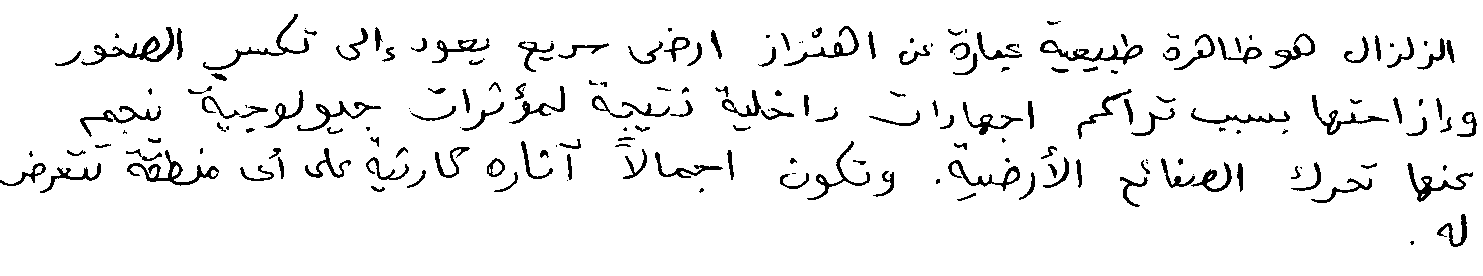 الزلزال هو ظاهرة طبيعية عبارة عن اهتزاز ارضى سريع يعود إلى تكسر الصخور
وإزاحتها بسبب تراكم اجهادات داخلية نتيجة لمؤثرات جيولوجية ينجم
عنها تحرك الصفائح الأرضية. وتكون اجمالاً آثاره كارثية على أى منطقة تتعرض
له .